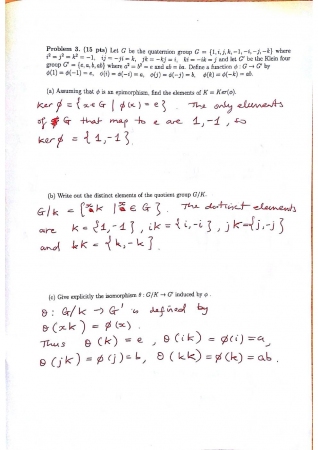 Problem 3. (15 pts) Let G be the quaternion group G = {1, i, j, k, −1, −i, −j, −k} where
i² = j² = k² = −1, ij = −ji = k, jk = −kj = i, ki = −ik = j and let G' be the Klein four
group G' = {e, a, b, ab} where a² = b² = e and ab = ba. Define a function φ : G → G' by
φ(1) = φ(−1) = e, φ(i) = φ(−i) = a, φ(j) = φ(−j) = b, φ(k) = φ(−k) = ab.
(a) Assuming that φ is an epimorphism, find the elements of K = Ker(φ).
Ker φ = {x ∈ G | φ(x) = e}. The only elements
of G that map to e are 1, -1, so
ker φ = {1, -1}.
(b) Write out the distinct elements of the quotient group G/K.
G/K = {xK | x ∈ G}. The distinct elements
are K = {1, -1}, iK = {i, -i}, jK = {j, -j}
and kK = {k, -k}.
(c) Give explicitly the isomorphism θ : G/K → G' induced by φ.
θ : G/K → G' is defined by
θ(xK) = φ(x).
Thus θ(K) = e, θ(iK) = φ(i) = a,
θ(jK) = φ(j) = b, θ(kK) = φ(k) = ab.